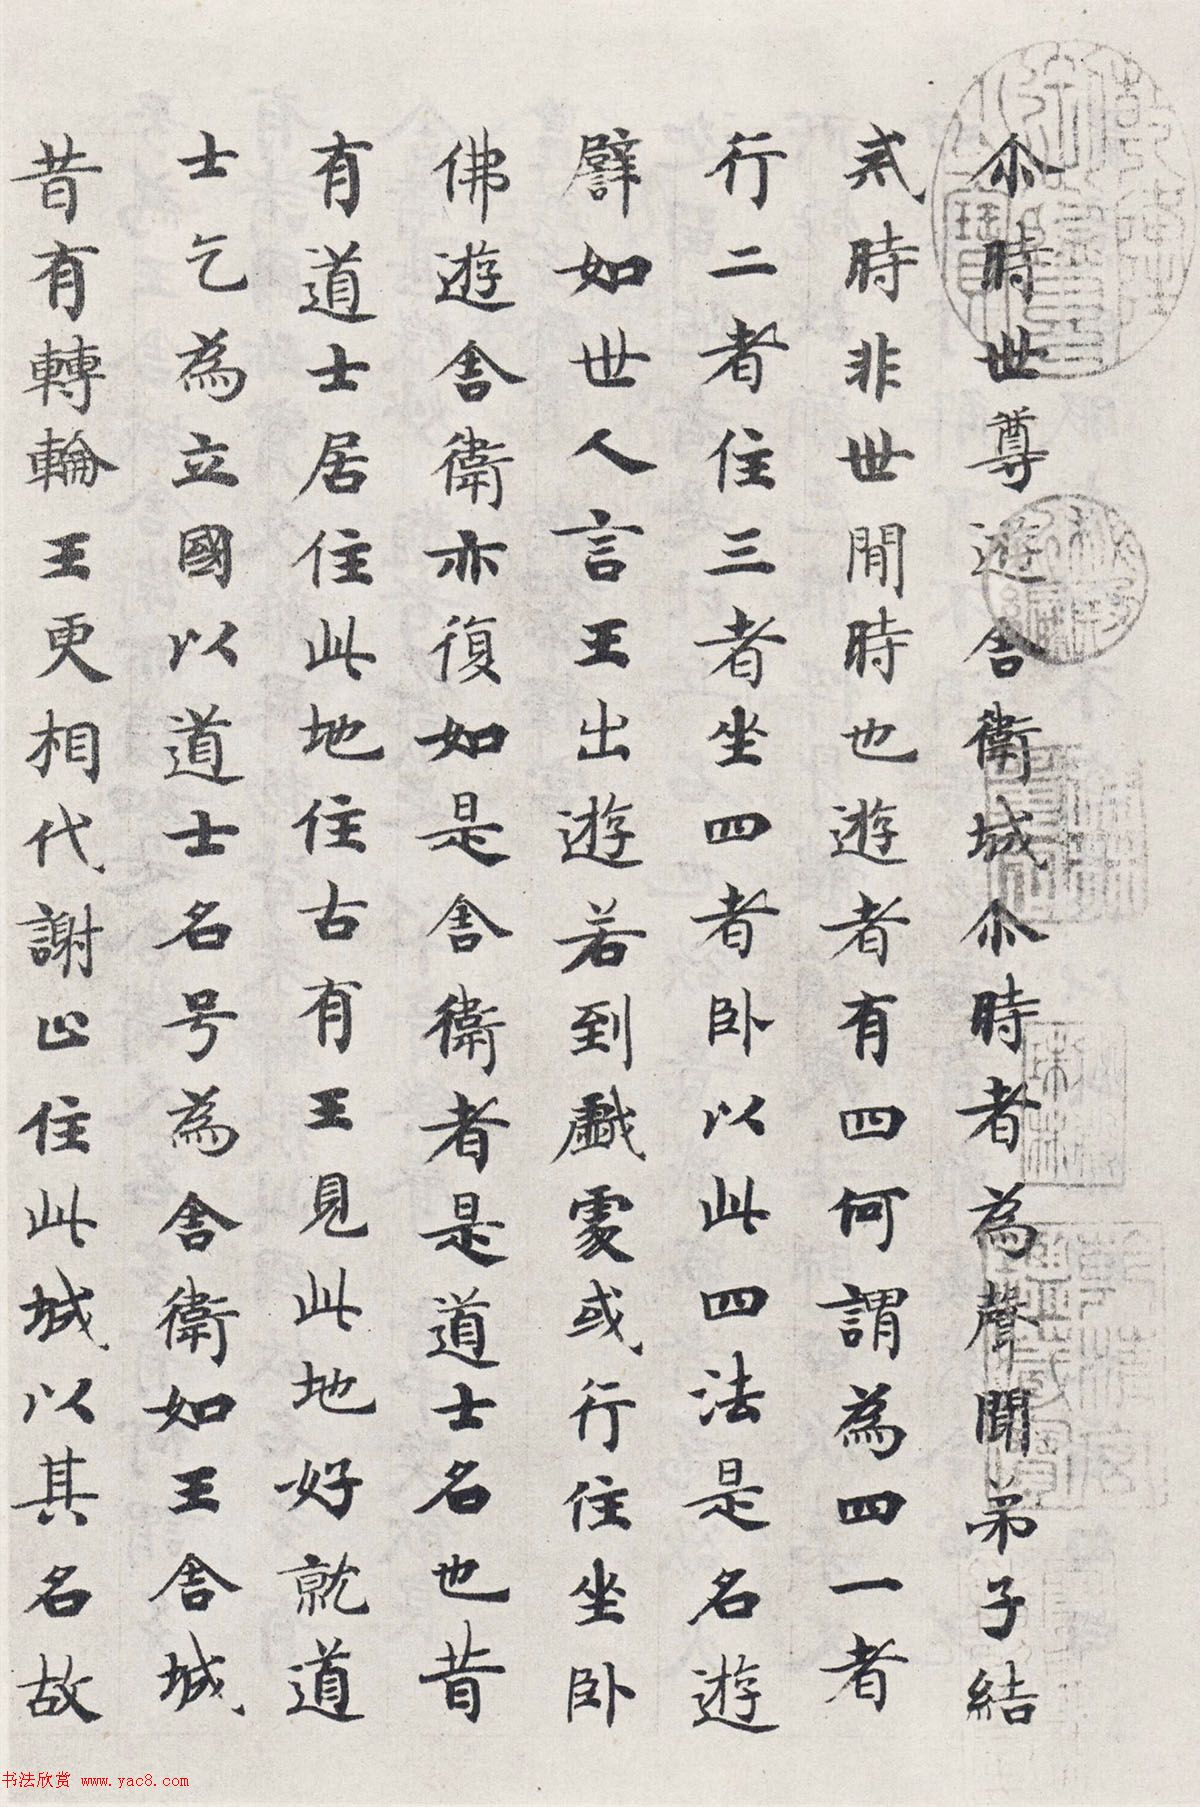 尒時世尊遊舎衛城尒時者為聲聞弟子結
戒時非世間時也遊者有四何謂為四一者
行二者住三者坐四者卧以此四法是名遊
譬如世人言王出遊若到戲處或行住坐卧
佛遊舎衛亦復如是舎衛者是道士名也昔
有道士居住此地住古有王見此地好就道
士乞為立國以道士名号為舎衛如王舎城
昔有轉輪王更相代謝止住此城以其名故
书法欣赏 www.yac8.com